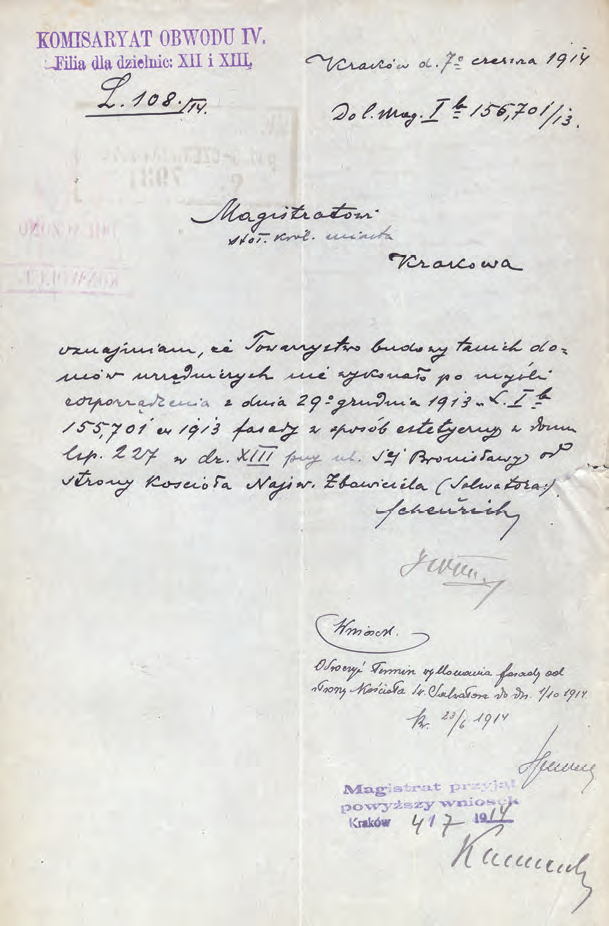 KOMISARYAT OBWODU IV.
Filia dla dzielnic: XII i XIII,
L. 108./14.
Kraków d. 7º czerwca 1914
Do l. Mag. I b 156,701/13.
Magistratowi
stoł. król. miasta
Krakowa
oznajmiam, że Towarzystwo budowy tanich do=
mów urzędniczych nie wykonało po myśli
rozporządzenia z dnia 29º grudnia 1913 L. I b
155,701 ex 1913 fasady w sposób estetyczny w domu
lsp. 227 w dz. XIII przy ul. Sej Bronisławy od
strony Kościoła Najśw. Zbawiciela (Salwatora:)
Wniosek.
Odroczyć termin wykonania fasady od
strony Kościoła św. Salwatora do dn. 1/10 1914
Kr. 23/6 1914
Magistrat przyjął
powyższy wniosek
Kraków 4/7 1914